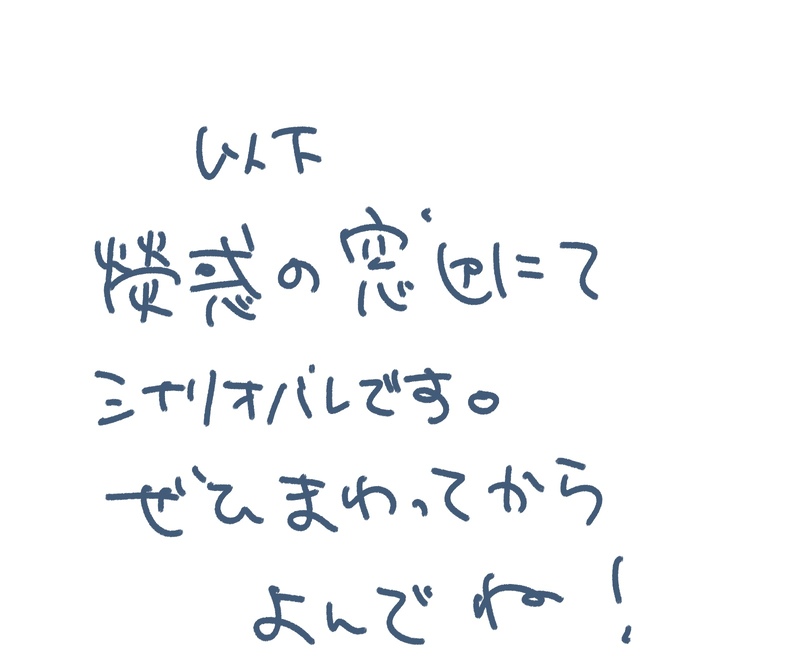 以下
熒惑の窓辺にて
シナリオバレです。
ぜひまわってから
よんでね!